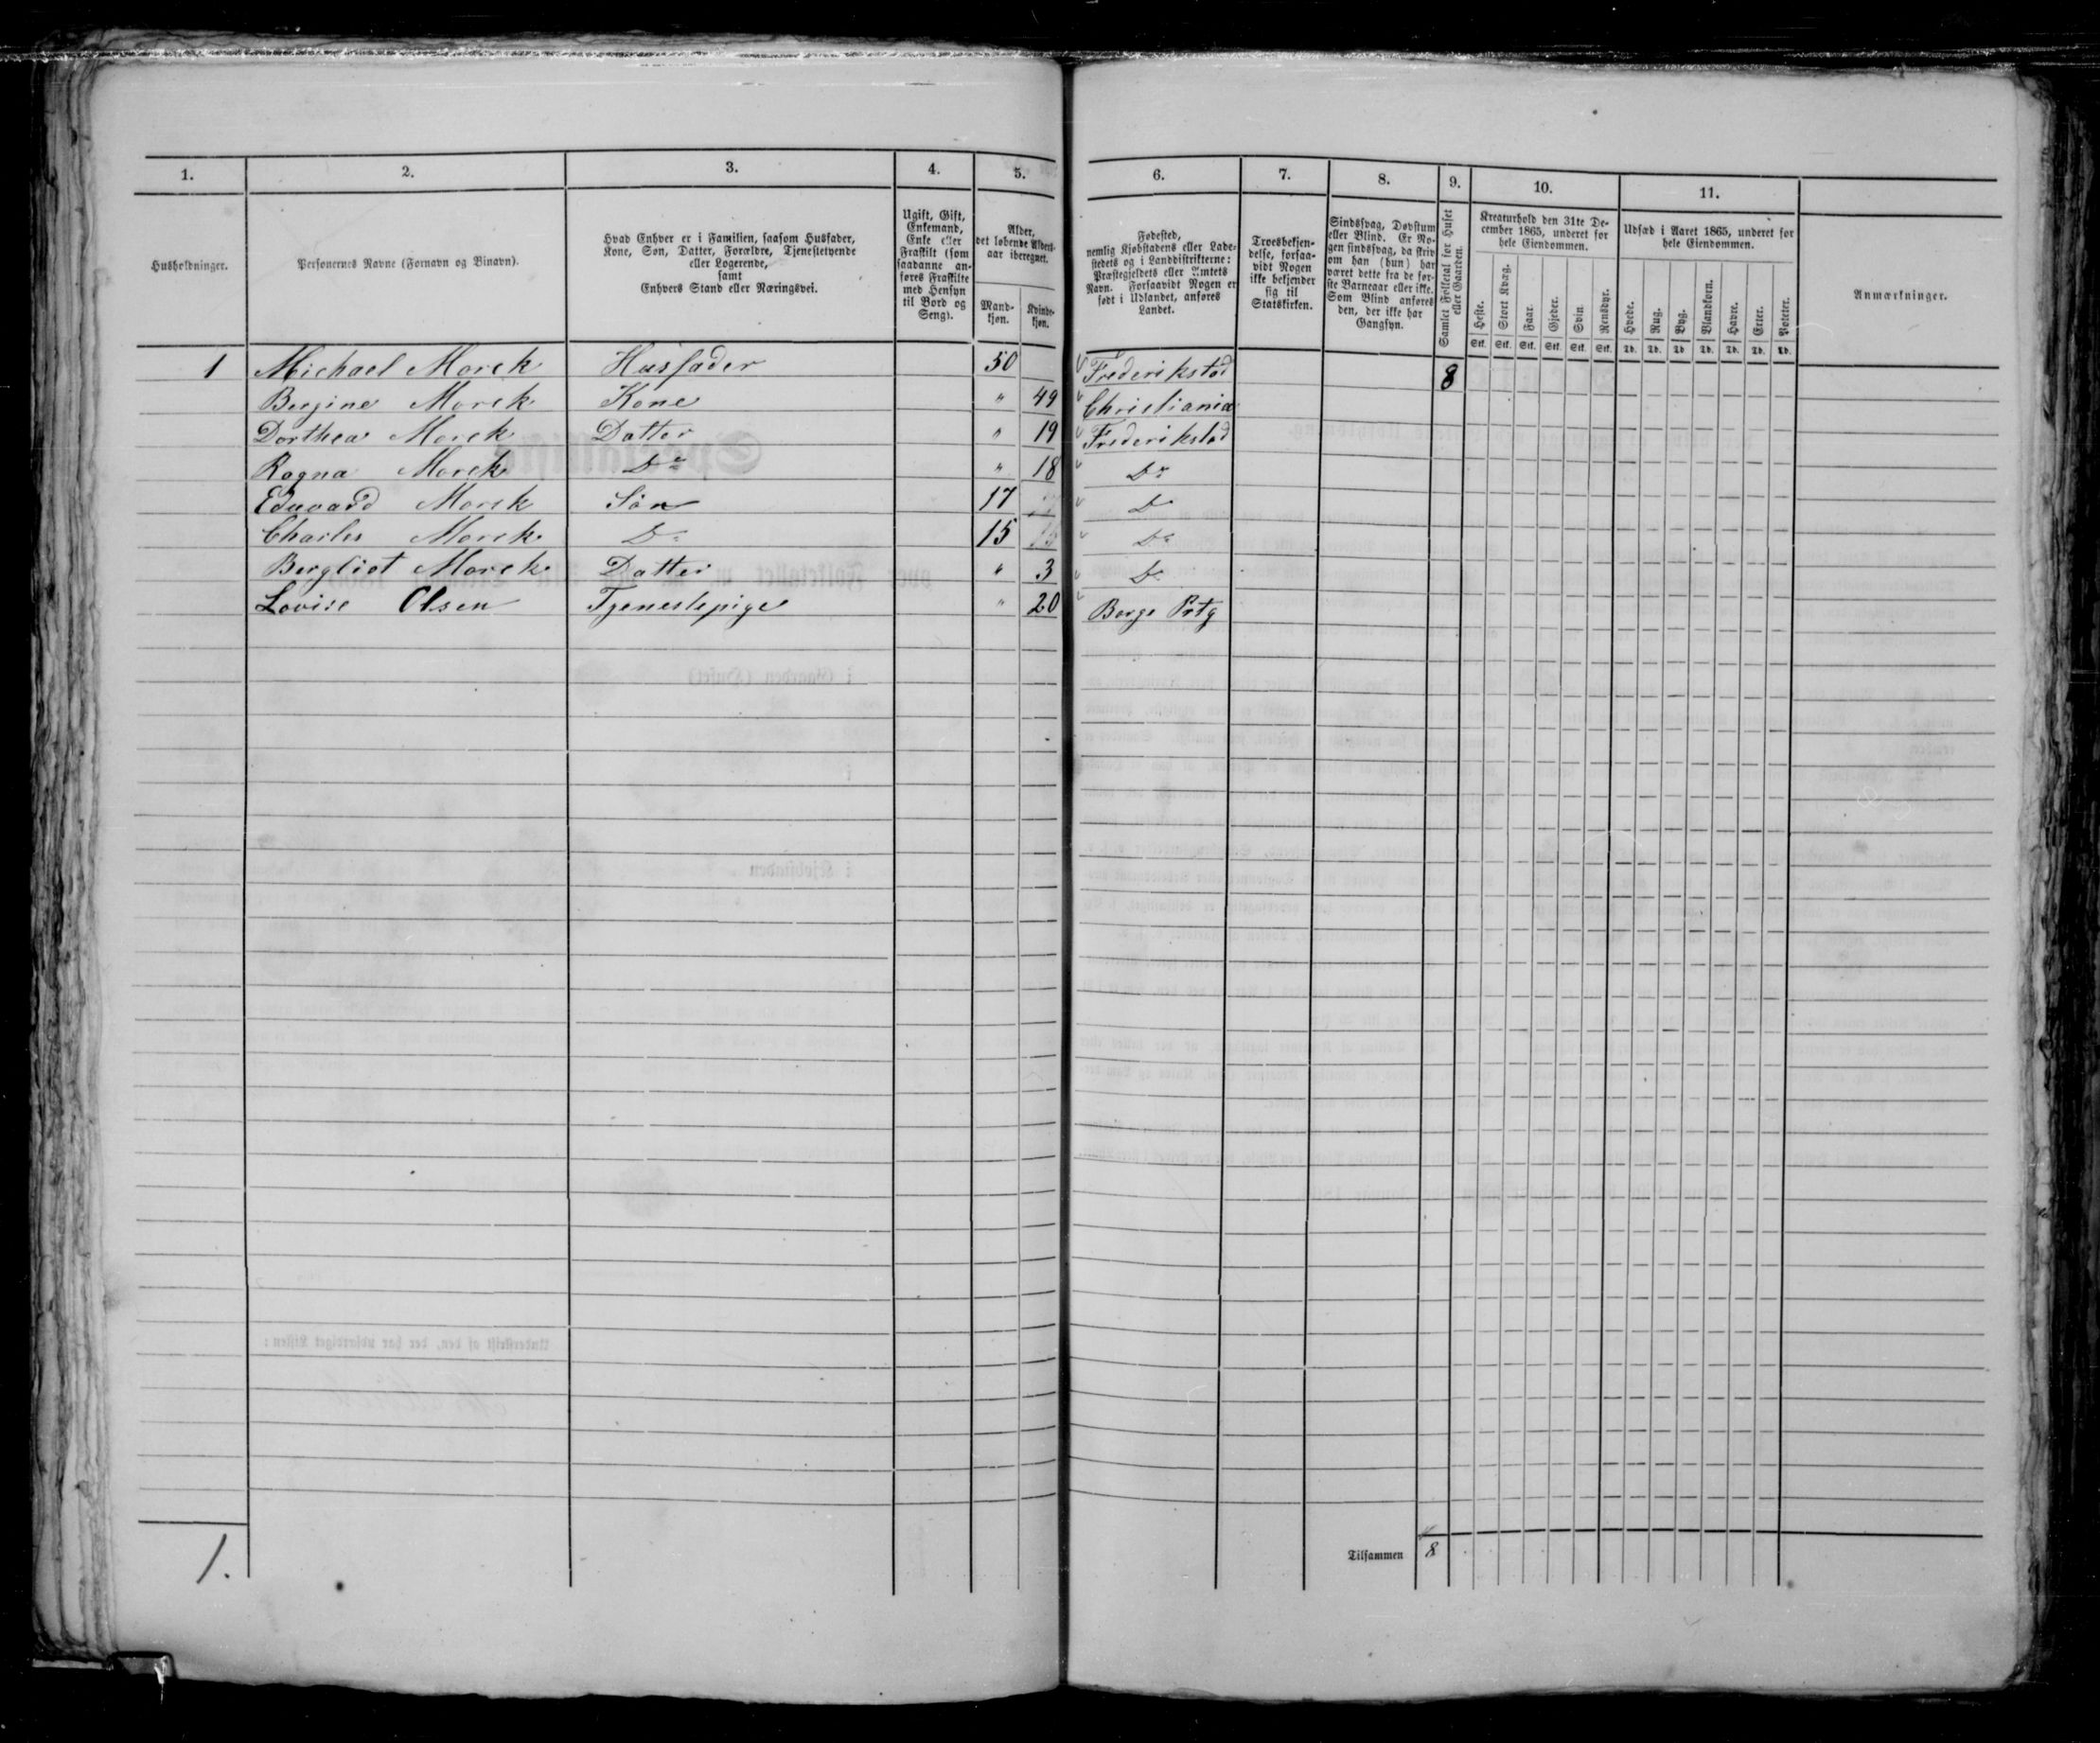 1. 2. 3. 4. 5. 6. 7. 8. 9. 10. 11.
Husholdninger.
Personernes Navne (Fornavn og Binavn).
Hvad Enhver er i Familien, saasom Husfader,
Kone, Søn, Datter, Forældre, Tjenestetyende
eller Logerende,
samt
Enhvers Stand eller Næringsvei.
Ugift, Gift,
Enkemand,
Enke eller
Fraskilt (som
saadanne an-
føres Fraskilte
med Hensyn
til Bord og
Seng).
Alder,
det løbende Alders-
aar iberegnet.
Mand-
kjøn.
Kvinde-
kjøn.
Fødested,
nemlig Kjøbstadens eller Lade-
stedets og i Landdistrikterne:
Præstegjeldets eller Amtets
Navn. Forsaavidt Nogen er
født i Udlandet, anføres
Landet.
Troesbekjen-
delse, forsaa-
vidt Nogen
ikke bekjender
sig til
Statskirken.
Sindssvag, Døvstum
eller Blind. Er No-
gen sindssvag, da skriv
om han (hun) har
været dette fra de før-
ste Barneaar eller ikke.
Som Blind anføres
den, der ikke har
Gangsyn.
Samlet Folketal for Huset
eller Gaarden.
Kreaturhold den 31te De-
cember 1865, underet for
hele Eiendommen.
Heste. Stort Kvæg. Faar. Gjeder. Svin. Rensdyr.
Stk. Stk. Stk. Stk. Stk. Stk.
Udsæd i Aaret 1865, underet for
hele Eiendommen.
Hvede. Rug. Byg. Blandkorn. Havre. Erter. Poteter.
Td. Td. Td. Td. Td. Td. Td.
Anmærkninger.
1 Michael Morck Husfader 50 Frederikstad 8
Bergine Morck Kone " 49 Christiania
Dorthea Morck Datter " 19 Frederikstad
Ragna Morck Do " 18 Do
Eduvard Morck Søn 17 Do
Charles Morck Do 15 Do
Bergliot Morck Datter " 3 Do
Lovise Olsen Tjenestepige " 20 Borge Prtg
1.
Tilsammen 8